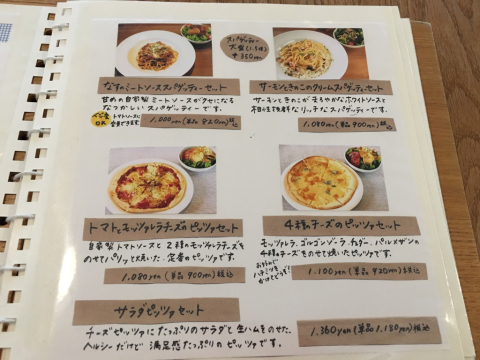 スパゲッティー
大盛(1.5倍)
+350yen
なすのミートソーススパゲッティーセット
甘めの自家製ミートソースがクセになる
なつかしいスパゲッティーです。
トマトソースに
変更できます
OK
1,000yen(単品 820yen)税込
サーモンときのこのクリームスパゲッティーセット
サーモンときのこがまろやかなホワイトソースと
相性抜群なリッチなスパゲッティーです。
1,080yen(単品 900yen)税込
トマトとモッツァレラチーズのピッツァセット
自家製トマトソースと2種のモッツァレラチーズを
のせてパリッと焼いた、定番のピッツァです。
1,080yen(単品 900yen)税込
4種チーズのピッツァセット
モッツァレラ、ゴルゴンゾーラ、チェダー、パルメザンの
4種のチーズをのせて焼いたピッツァです。
お好みで
ハチミツを
かけてどうぞ!
1,100yen(単品 920yen)税込
サラダピッツァセット
チーズピッツァにたっぷりのサラダと生ハムをのせた、
ヘルシーだけど満足感たっぷりのピッツァです。
1,360yen(単品 1,180yen)税込